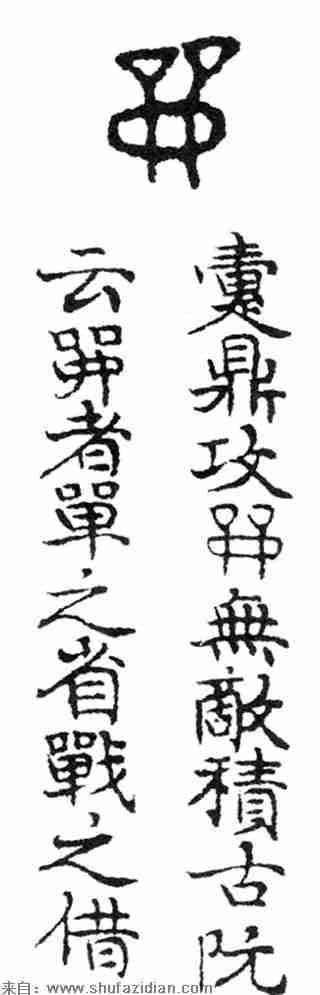 疐鼎攻無敵積古阮
云者單之省戰之借
来自：www.shufazidian.com